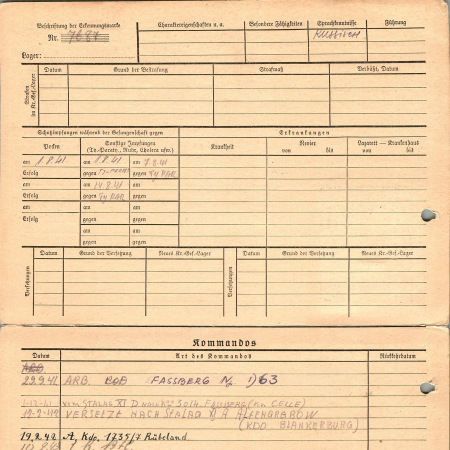 Beschriftung der Erkennungsmarke
Nr. 7697
Lager:
Charaktereigenschaften u. a.
Besondere Fähigkeiten
Sprachkenntnisse
Führung
Russisch
Strafen im Kr.-Gef.-Lager
Datum
Grund der Bestrafung
Strafmaß
Verbüßt, Datum
Schutzimpfungen während der Gefangenschaft gegen
Erkrankungen
Pocken
Sonstige Impfungen
(Ty.-Paraty., Ruhr, Cholera usw.)
Krankheit
Revier
von bis
Lazarett — Krankenhaus
von bis
am 1.8.41 am 1.8.41 am 7.8.41
Erfolg gegen gegen Ty PAR
am am 14.8.41 am
Erfolg gegen Ty PAR gegen
am am am
Erfolg gegen gegen
am am
gegen gegen
Versetzungen
Datum
Grund der Versetzung
Neues Kr.-Gef.-Lager
Versetzungen
Datum
Grund der Versetzung
Neues Kr.-Gef.-Lager
Kommandos
Datum
Art des Kommandos
Rückkehrdatum
29.9.41 ARB. FASSBERG 63
vom STALAG XI D nach FASSBERG CELLE
VERSETZT NACH STALAG XI A ALTENGRABOW
(KDO BLANKENBURG)
19.2.42 A. Kdo. 1735/7 Rübeland